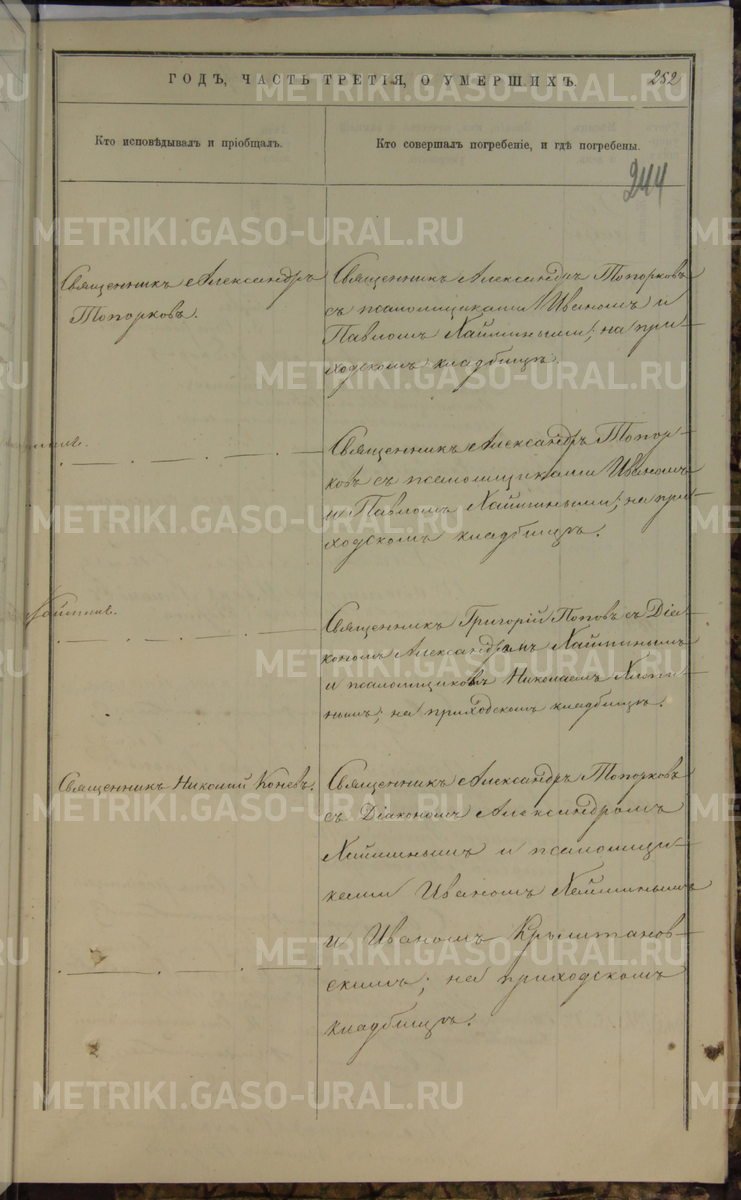 ГОДЪ, ЧАСТЬ ТРЕТІЯ, О УМЕРШИХЪ.
252
Кто исповѣдывалъ и пріобщалъ.
Кто совершалъ погребеніе, и гдѣ погребены.
244
Священникъ Александръ
Топорковъ.
Священникъ Александръ Топорковъ
съ псаломщиками Иваномъ и
Павломъ Хаймиными; на при-
ходскомъ кладбищѣ.
Священникъ Александръ Топор-
ковъ съ псаломщиками Иваномъ
и Павломъ Хаймиными; на при-
ходскомъ кладбищѣ.
Священникъ Григорій Поповъ съ Діа-
кономъ Александромъ Хайминымъ
и псаломщикомъ Николаемъ
нымъ; на приходскомъ кладбищѣ.
Священникъ Николай Коневъ.
Священникъ Александръ Топорковъ
съ Діакономъ Александромъ
Хайминымъ и псаломщи-
ками Иваномъ Хайминымъ
и Иваномъ Крыштанов-
скимъ; на приходскомъ
кладбищѣ.
METRIKI.GASO-URAL.RU